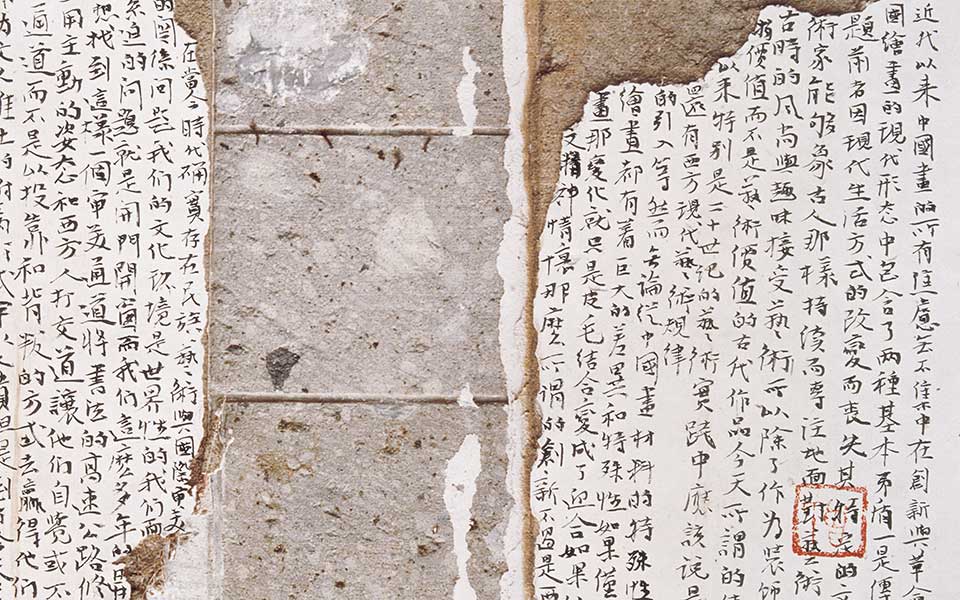 近代以来中國畫的所有焦慮無不集中在創新與革命
國繪畫的現代形态中包含了两種基本矛盾一是傳
題前者因現代生活方式的改變而丧失其特定的文
術家能够象古人那樣持续而專注地面對藝術
古時的风尚與趣味接受藝術可以除了作为装飾
價值而不是藝術價值的古代作品今天所謂的
以来特別是二十世纪的藝術實踐中應該說是
還有西方現代藝術規律
的引入等然而無論從中國畫材料的特殊性
繪畫都有着巨大的差異和特殊性如果僅
畫那變化就只是皮毛结合變成了迎合如果
文精神情懷那麽所謂的創新不過是西
在當今時代確實存在民族藝術與國際审美
的关係問我們的文化环境是世界性的我們而
迫的问题就是開門開窗而我們這麽多年的
想找到這樣一個审美通道將書法的高速公路修
用主動的姿态和西方人打交道讓他們自覺或不
通道而不是以投靠和背叛的方式去赢得他們